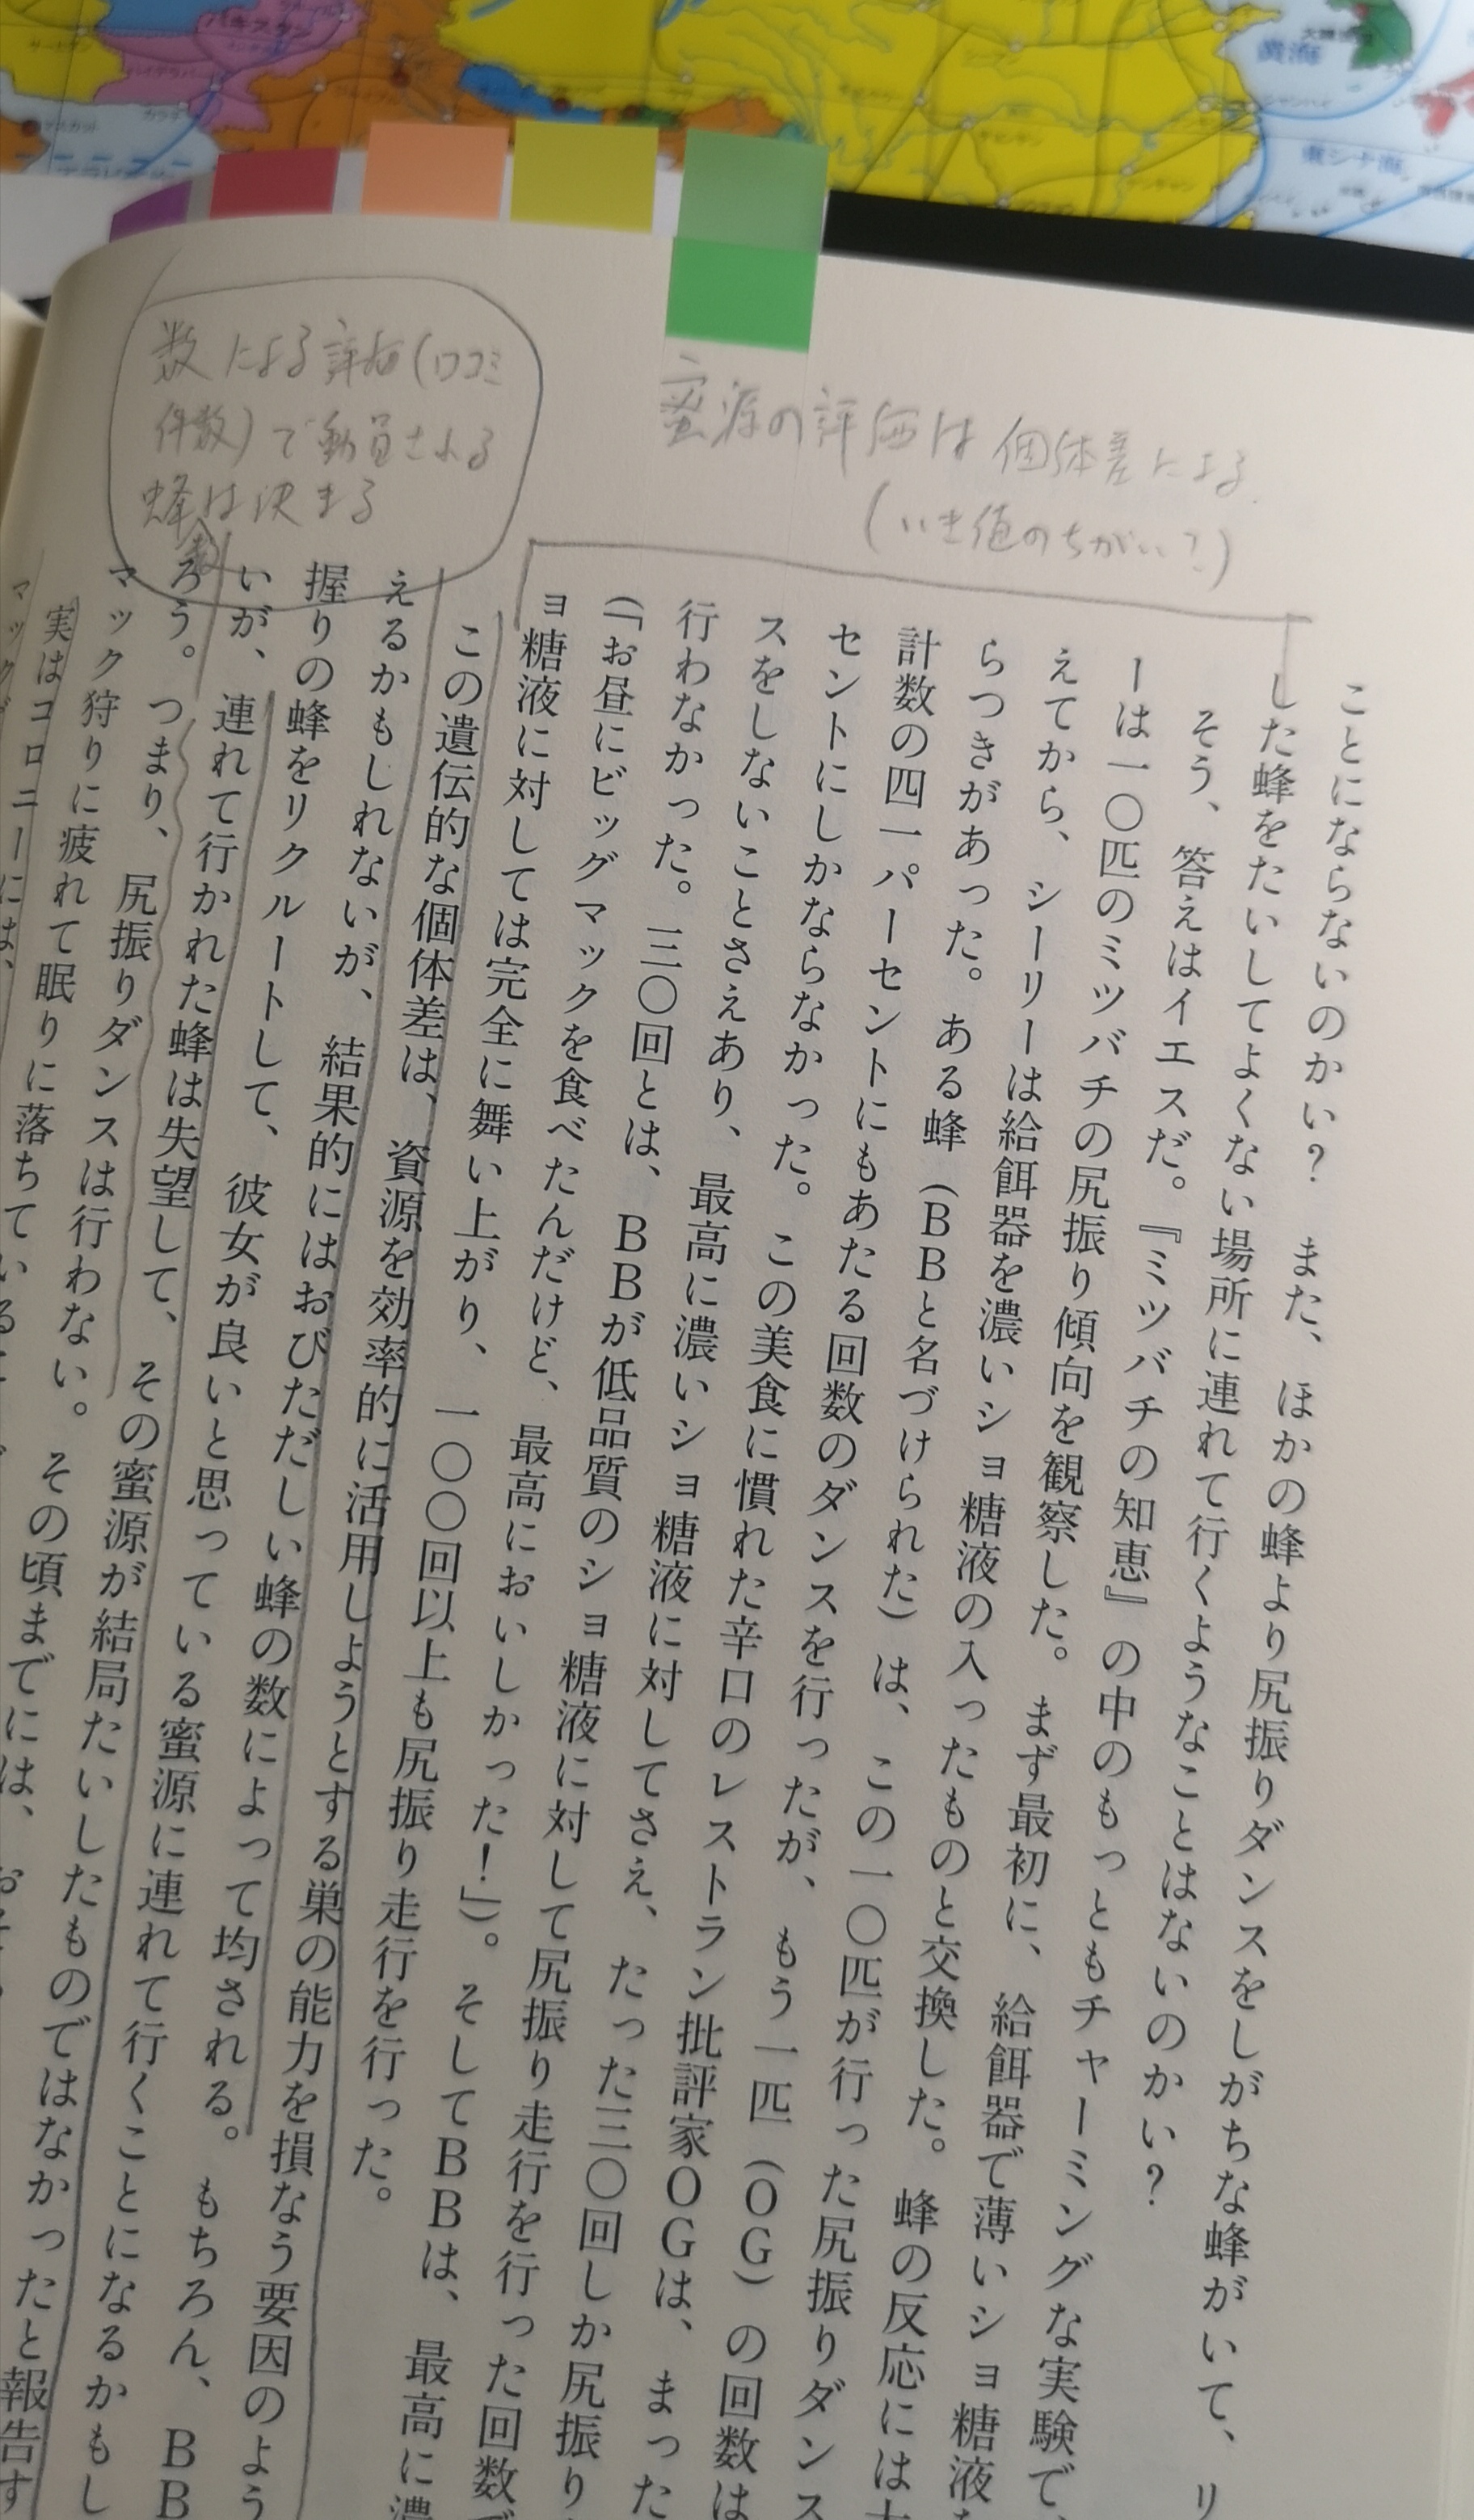 蜜源の評価は個体差による
(いき値のちがい?)
数による評価(口コミ
件数)で動員される
蜂は決まる
数
ことにならないのかい？　また、ほかの蜂より尻振りダンスをしがちな蜂がいて、リ
した蜂をたいしてよくない場所に連れて行くようなことはないのかい？
そう、答えはイエスだ。『ミツバチの知恵』の中のもっともチャーミングな実験で、
ーは一〇匹のミツバチの尻振り傾向を観察した。まず最初に、給餌器で薄いショ糖液
えてから、シーリーは給餌器を濃いショ糖液の入ったものと交換した。蜂の反応には
らつきがあった。ある蜂（ＢＢと名づけられた）は、この一〇匹が行った尻振りダンス
計数の四一パーセントにもあたる回数のダンスを行ったが、もう一匹（ＯＧ）の回数は
セントにしかならなかった。この美食に慣れた辛口のレストラン批評家ＯＧは、まった
スをしないことさえあり、最高に濃いショ糖液に対してさえ、たった三〇回しか尻振り
行わなかった。三〇回とは、ＢＢが低品質のショ糖液に対して尻振り走行を行った回数
（「お昼にビッグマックを食べたんだけど、最高においしかった！」）。そしてＢＢは、最高に濃
ョ糖液に対しては完全に舞い上がり、一〇〇回以上も尻振り走行を行った。
この遺伝的な個体差は、資源を効率的に活用しようとする巣の能力を損なう要因のよう
えるかもしれないが、結果的にはおびただしい蜂の数によって均される。もちろん、ＢＢ
握りの蜂をリクルートして、彼女が良いと思っている蜜源に連れて行くことになるかもし
いが、連れて行かれた蜂は失望して、その蜜源が結局たいしたものではなかったと報告す
ろう。つまり、尻振りダンスは行わない。その頃までには、
マック狩りに疲れて眠りに落ちている
実はコロニーには、
マック
黄海
東シナ海